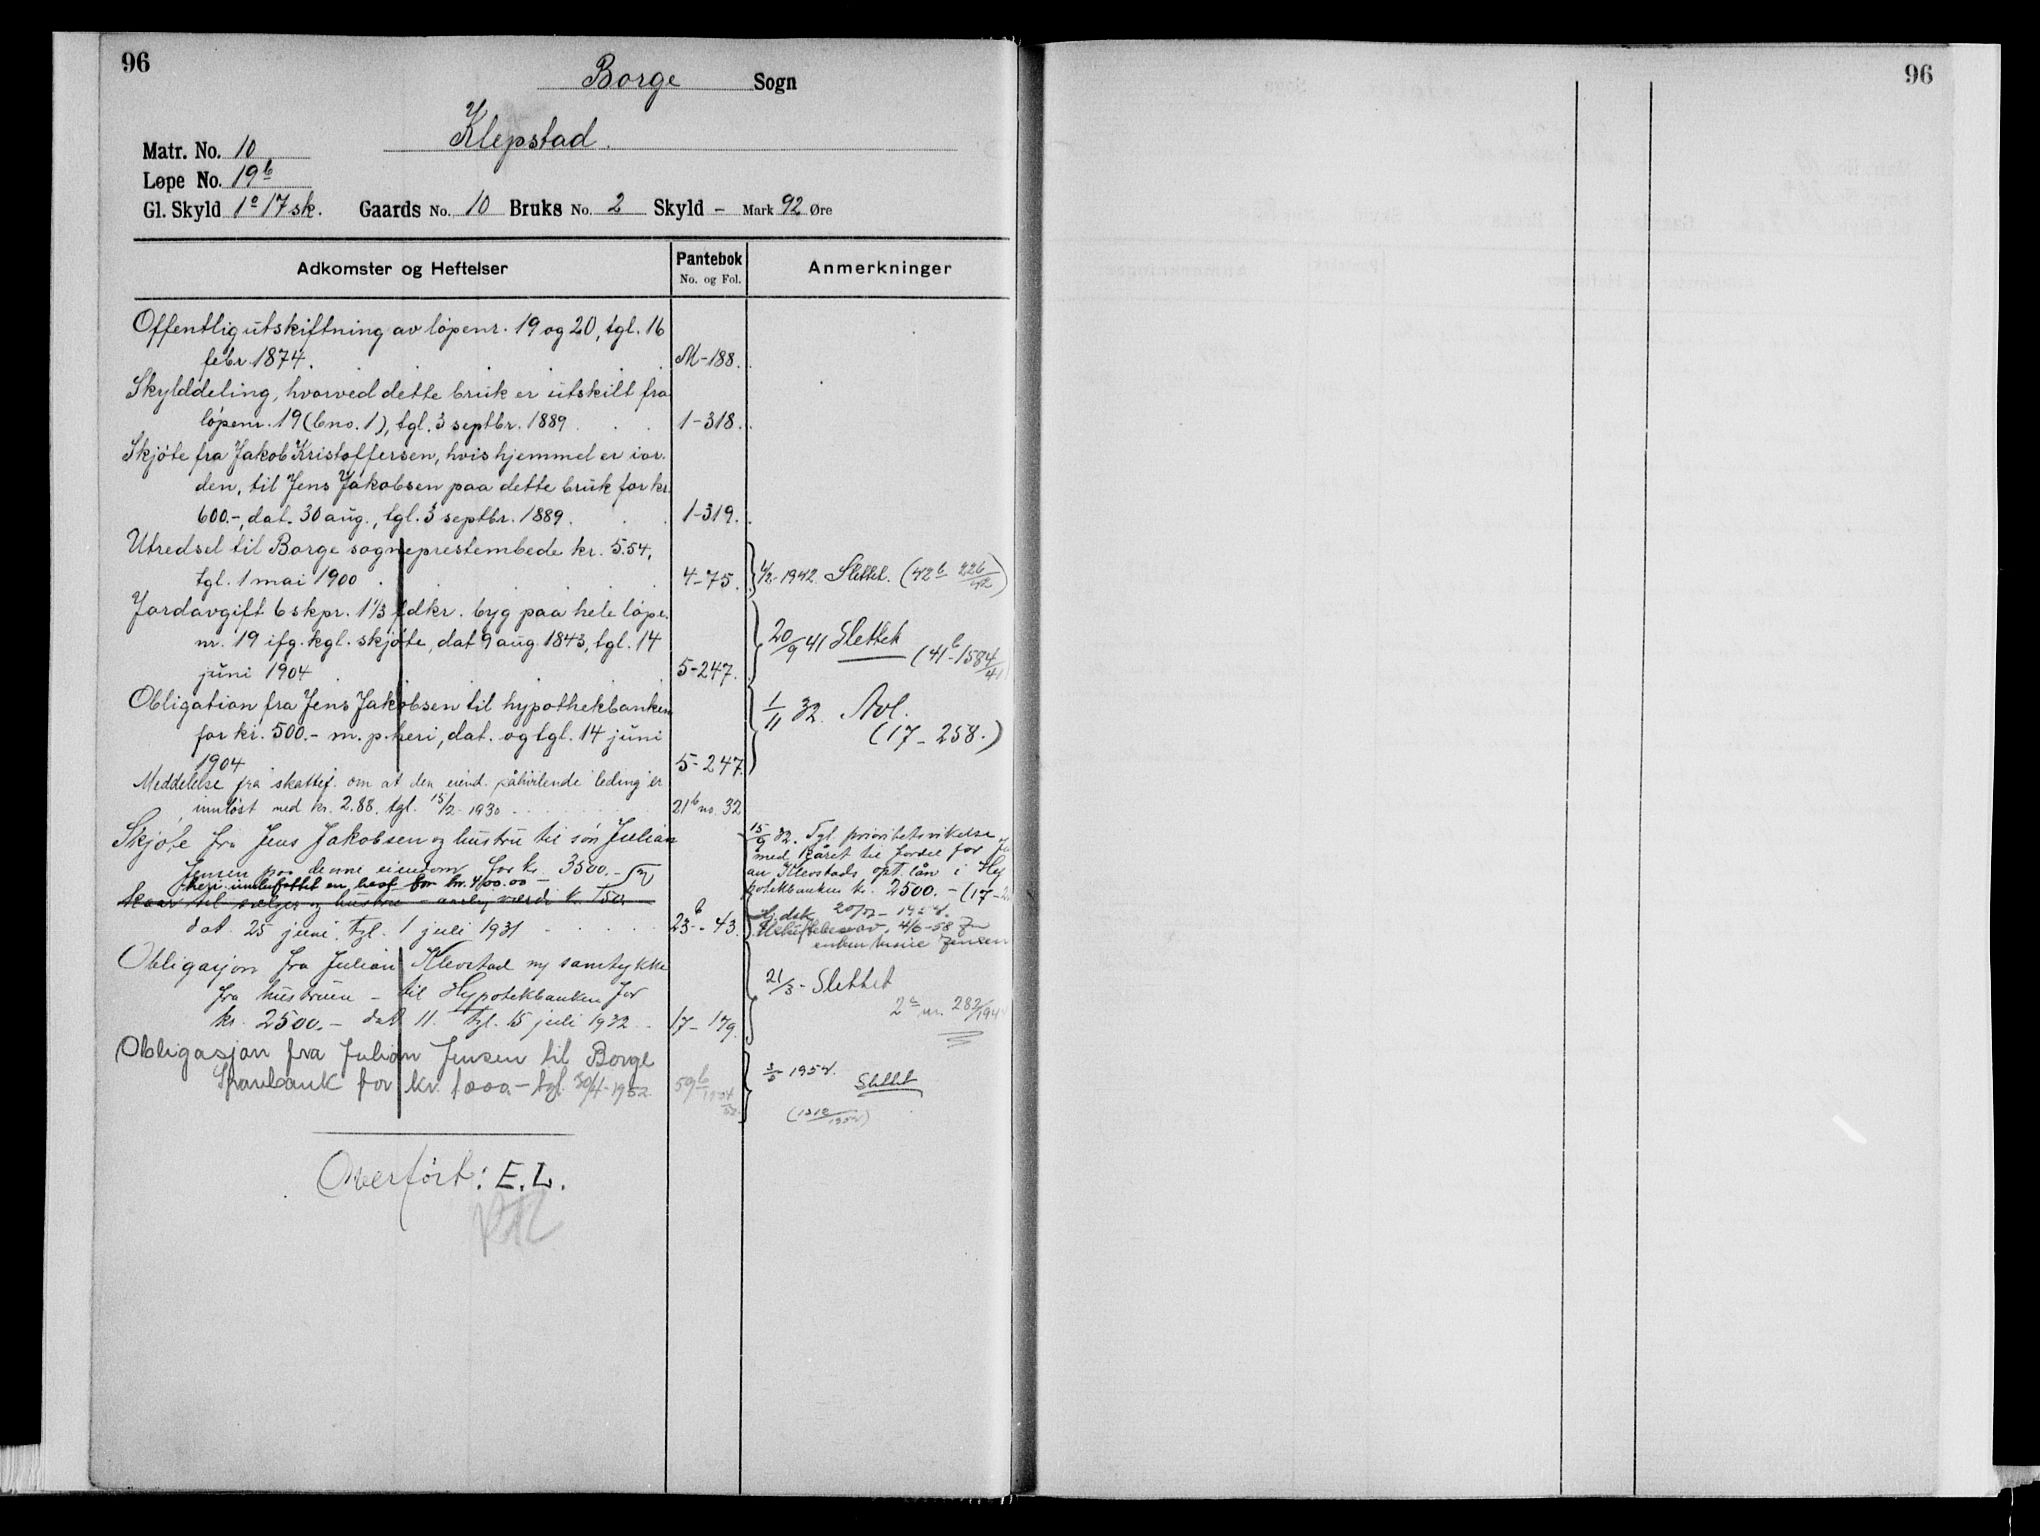 96
Borge Sogn
Klepstad.
Matr. No. 10
Løpe No. 19b
Gl. Skyld 1o 17 sk. Gaards No. 10 Bruks No. 2 Skyld – Mark 92 Øre
Adkomster og Heftelser
Pantebok
No. og Fol.
Anmerkninger
Offentlig utskiftning av löpenr. 19 og 20, tgl. 16
febr. 1874. M-188.
Skylddeling, hvorved dette bruk er utskilt fra
löpenr. 19 (bno. 1), tgl. 3 septbr. 1889 1-318.
Skjöte fra Jakob Kristoffersen, hvis hjemmel er i or-
den, til Jens Jakobsen paa dette bruk for kr.
600.-, dat. 30 aug., tgl. 3 septbr. 1889. 1-319.
Utredsel til Borge sogneprestembede kr. 5.54,
tgl. 1 mai 1900 4-75. 4/2-1942. Slettet. (42b 226/42)
Jordavgift 6 skpr. 1 1/3 fdkr. byg paa hele löpe-
nr. 19 ifg. kgl. skjöte, dat 9 aug. 1843, tgl. 14
juni 1904 5-247.
20/9 41 Slettet (41b-1584/41)
Obligation fra Jens Jakobsen til hypothekbanken
for kr. 500.- m. p. heri, dat. og tgl. 14 juni
1904 5-247.
1/11 32. Avl.
(17-258.)
Meddelelse fra skattef. om at den eiend. påhvilende leding er
innløst med kr. 2.88. tgl. 15/2-1930 21b no. 32
Skjøte fra Jens Jakobsen og hustru til søn Julian
Jensen paa denne eiendom for kr. 3500.-
heri innbefattet en hest for kr. 400.00 -
til og hustru - aarlig værdi kr. 150
dat. 25 juni, tgl. 1 juli 1931 23b-43.
15/9 32. Tgl. prioritetsvikelse
med kåret til fordel for Ju-
an Klevstads opt. lån i Hy
potekbanken kr. 2500.- (17-2
Hj. dok
Uskifte 4/6-58
enken Jensen
Obligasjon fra Julian Klevstad m/ samtykke
fra hustruen - til Hypotekbanken for
kr. 2500.- dat 11. tgl. 15 juli 1932 17-179.
21/3- Slettet
2a nr. 282/194
Obligasjon fra Julian Jensen til Borge
Sparebank for kr. tgl. 30/4-1952 59b
1954. Slettet
Overført: E.L.
96